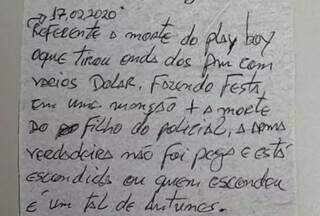 → 17.02.2020
Referente a morte do play boy
oque tirou onda dos PM com
varios Dolar, Fazendo Festa,
em uma mansão + a morte
Do Filho do policial, a arma
verdadeira não foi pega e está
escondida ou quem escondeu
é um tal de Antunes.